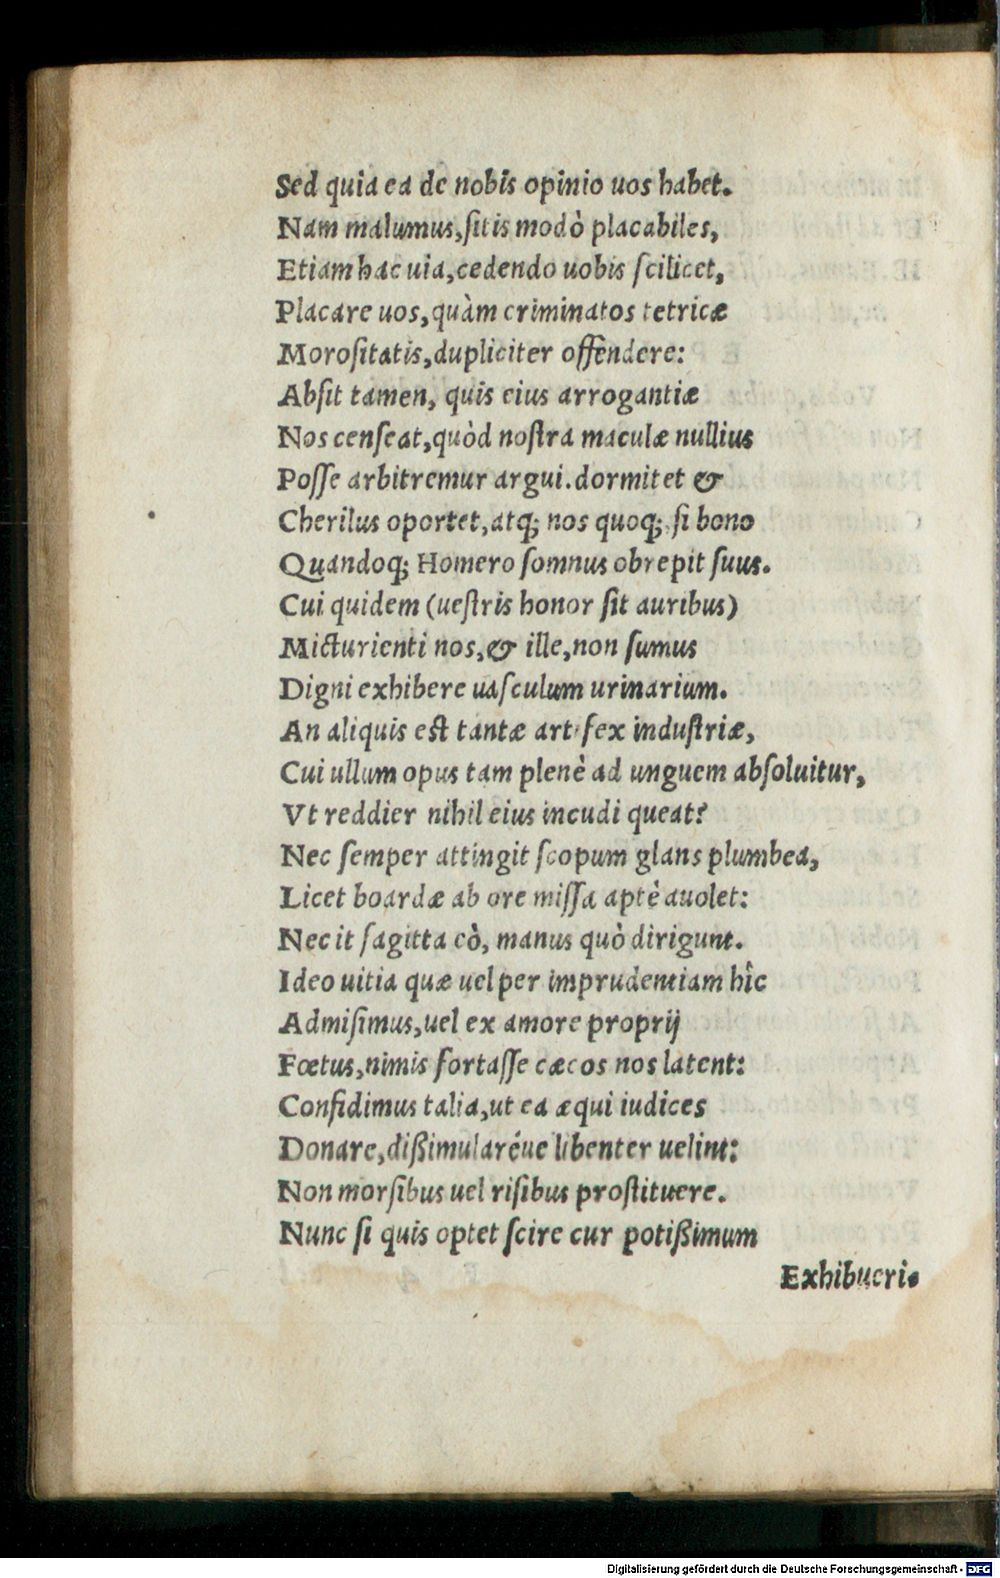 Sed quia ea de nobis opinio uos habet.
Nam malumus,ſitis modò placabiles,
Etiam hac uia,cedendo uobis ſcilicet,
Placare uos,quàm criminatos tetricæ
Moroſitatis,dupliciter offendere:
Abſit tamen, quis eius arrogantiæ
Nos cenſeat,quòd noſtra maculæ nullius
Poſſe arbitremur argui.dormitet &
Cherilus oportet,atq; nos quoq; ſi bono
Quandoq; Homero ſomnus obrepit ſuus.
Cui quidem (ueſtris honor ſit auribus)
Micturienti nos,& ille,non ſumus
Digni exhibere uaſculum urinarium.
An aliquis eſt tantæ artifex induſtriæ,
Cui ullum opus tam plenè ad unguem abſoluitur,
Vt reddier nihil eius incudi queat?
Nec ſemper attingit ſcopum glans plumbea,
Licet boardæ ab ore miſſa aptè auolet:
Nec it ſagitta cò, manus quò dirigunt.
Ideo uitia quæ uel per imprudentiam hîc
Admiſimus,uel ex amore proprij
Fœtus,nimis fortaſſe cæcos nos latent:
Confidimus talia,ut ea æqui iudices
Donare,dißimularéue libenter uelint:
Non morſibus uel riſibus proſtituere.
Nunc ſi quis optet ſcire cur potißimum
Exhibueri⸗
Digitalisierung gefördert durch die Deutsche Forschungsgemeinschaft - DFG